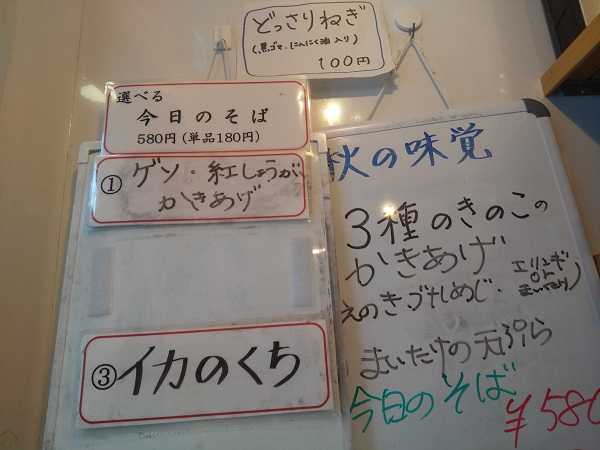 どっさりねぎ
(黒ゴマ・にんにく油入り)
100円
選べる
今日のそば
580円(単品180円)
① ゲソ・紅しょうが
かきあげ
③ イカのくち
秋の味覚
3種のきのこの
かきあげ
えのき、ブナしめじ・エリンギ
or
まいたけ)
まいたけの天ぷら
今日のそば
¥580